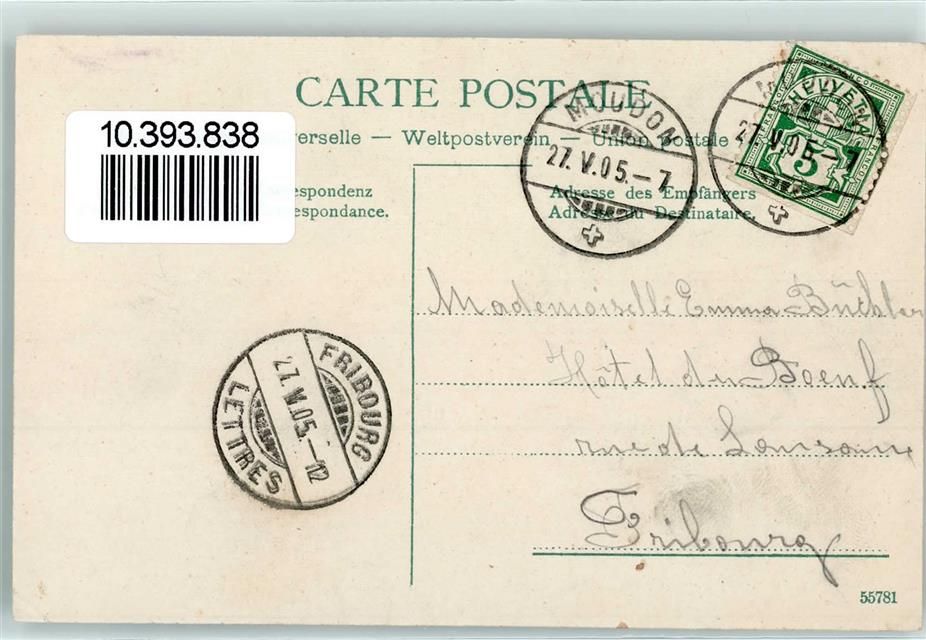 CARTE POSTALE
10.393.838
verselle — Weltpostverein — Union postale
espondenz
espondance.
Adresse des Empfängers
Adresse du Destinataire.
MOUDON
27. V. 05. – 7
HELVETIA
FRANCO
5
27. V. 05. – 7
Mademoiselle Emma Büchler
Hôtel du Boeuf
rue de Lausanne
Fribourg
FRIBOURG
27. V. 05. – 12
LETTRES
55781